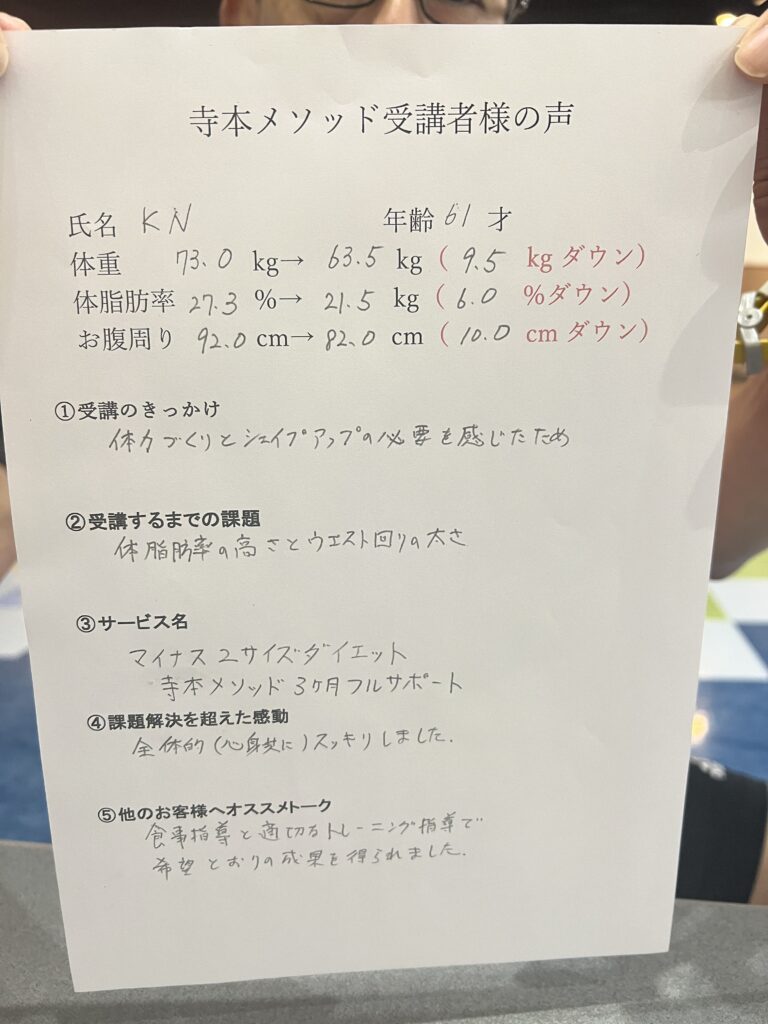 寺本メソッド受講者様の声
氏名 KN 年齢 61 才
体重 73.0 kg→ 63.5 kg ( 9.5 kg ダウン)
体脂肪率 27.3 %→ 21.5 kg ( 6.0 %ダウン)
お腹周り 92.0 cm→ 82.0 cm ( 10.0 cm ダウン)
①受講のきっかけ
体力づくりとシェイプアップの必要を感じたため
②受講するまでの課題
体脂肪率の高さとウエスト回りの太さ
③サービス名
マイナス2サイズダイエット
寺本メソッド3ヶ月フルサポート
④課題解決を超えた感動
全体的(心身共に)スッキリしました.
⑤他のお客様へオススメトーク
食事指導と適切なトレーニング指導で
希望どおりの成果を得られました.